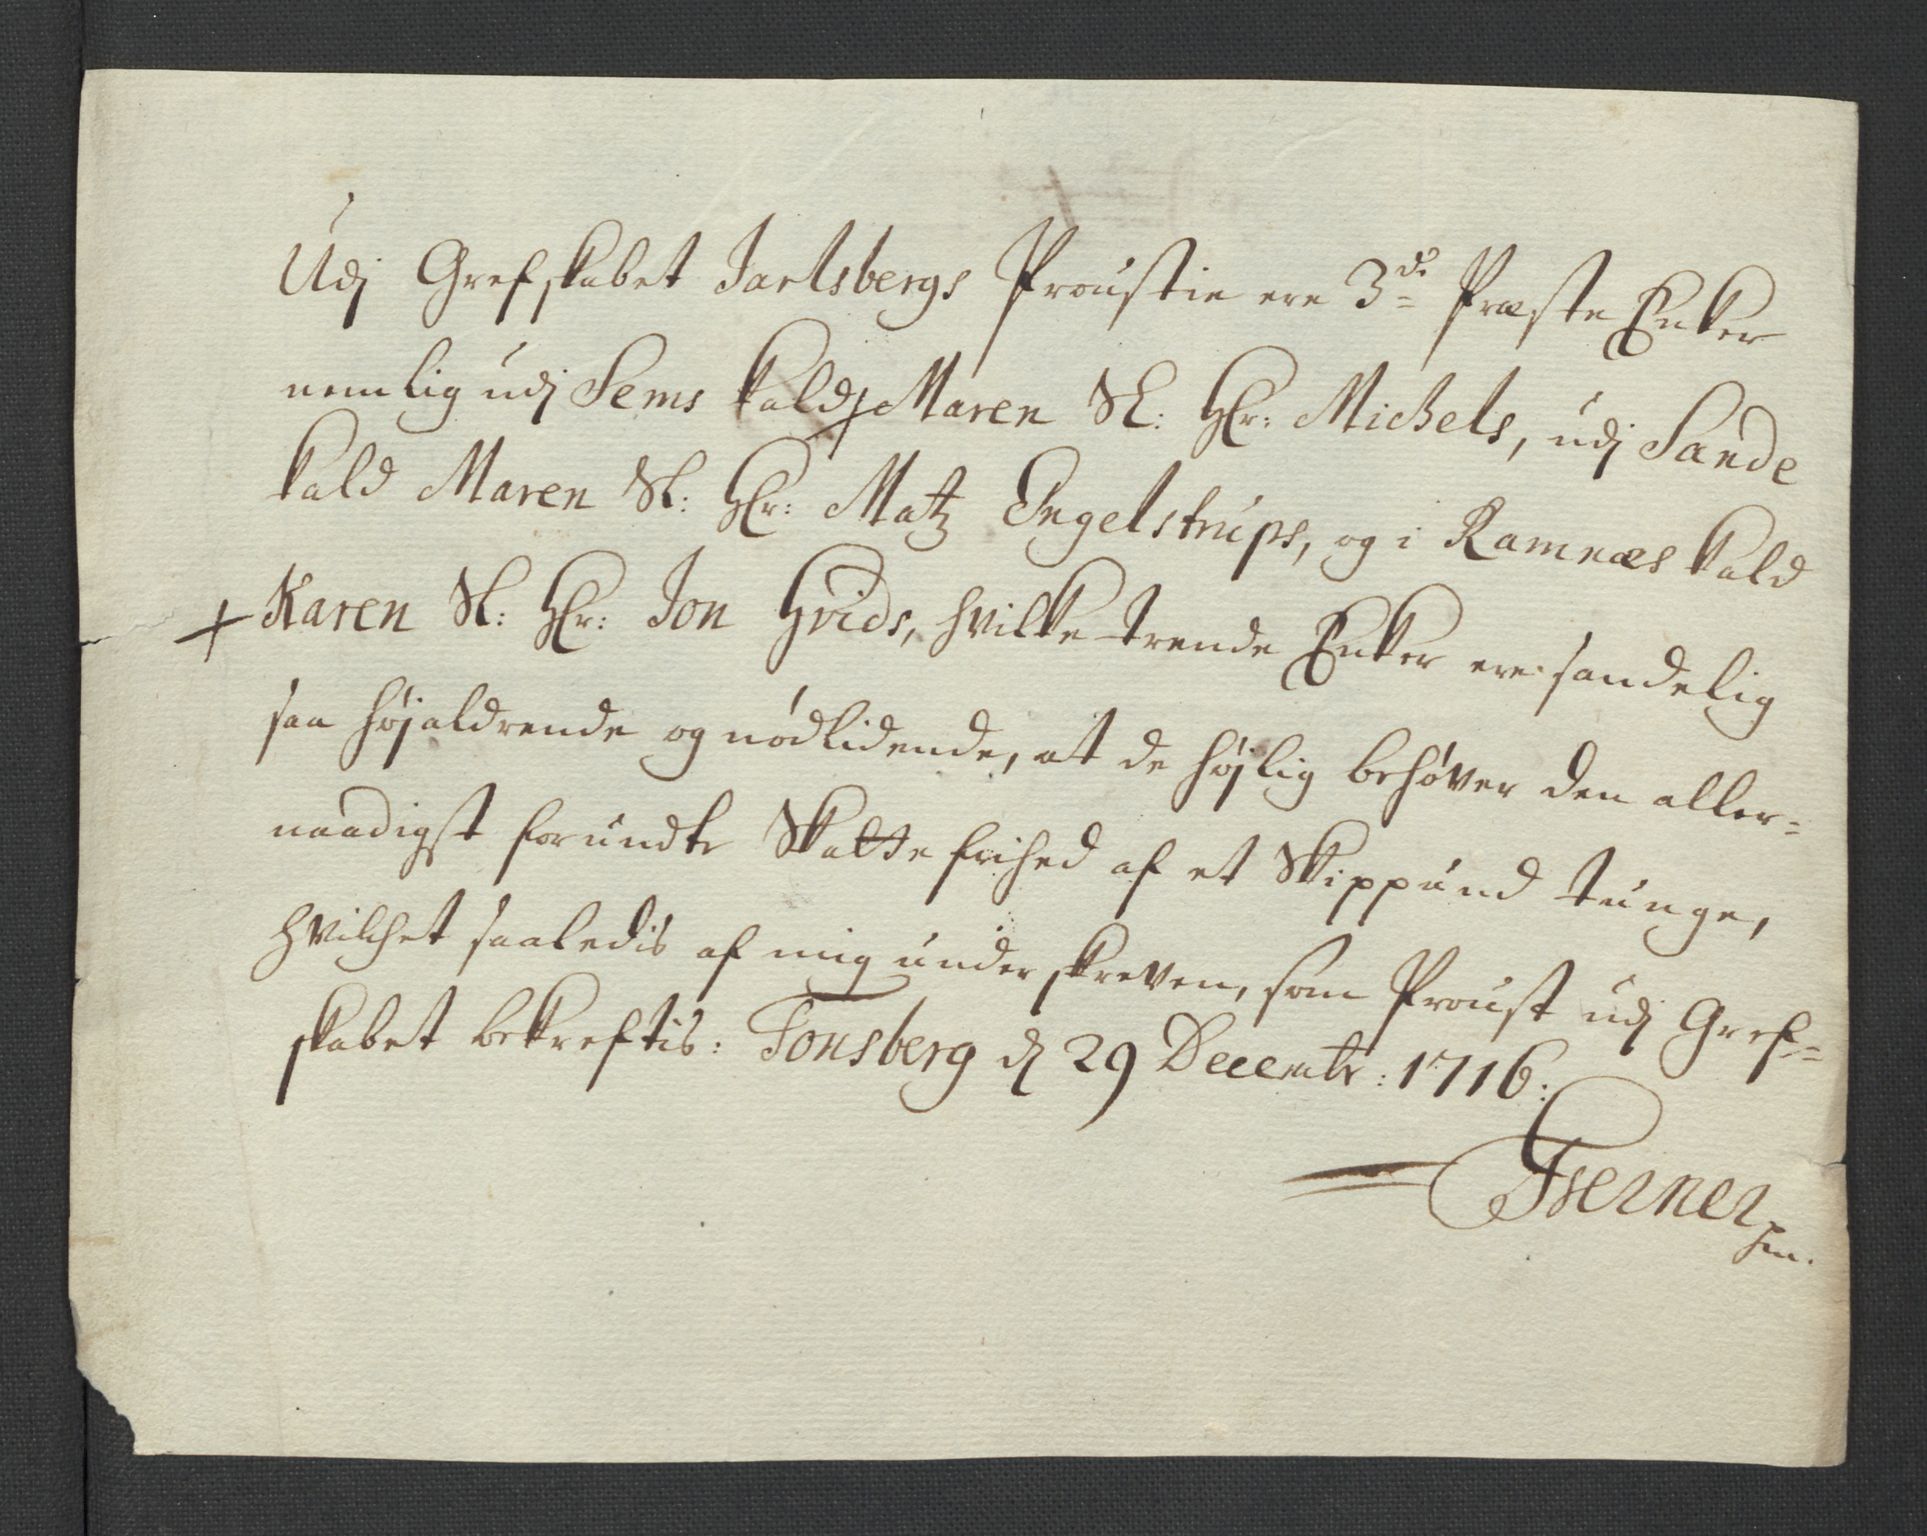 Udj Grefskabet Jarlsbergs Proustie ere 3de Præste Enker
nemlig udj Sems kald + Maren Sl: Hr: Michels, udj Sande
kald Maren Sl: Hr: Matz Engelstrups, og i Ramnæs kald
+ Karen Sl: Hr: Jon Hvids, hvilke trende Enker ere sandelig
saa højaldrende og nødlidende, at de højlig behøver den aller=
naadigst forundte Skatte frihed af et Skippund tunge,
hvilchet saaledis af mig underskreven, som Proust udj Gref=
skabet bekreftis: Tonsberg d 29 Decembr: 1716.